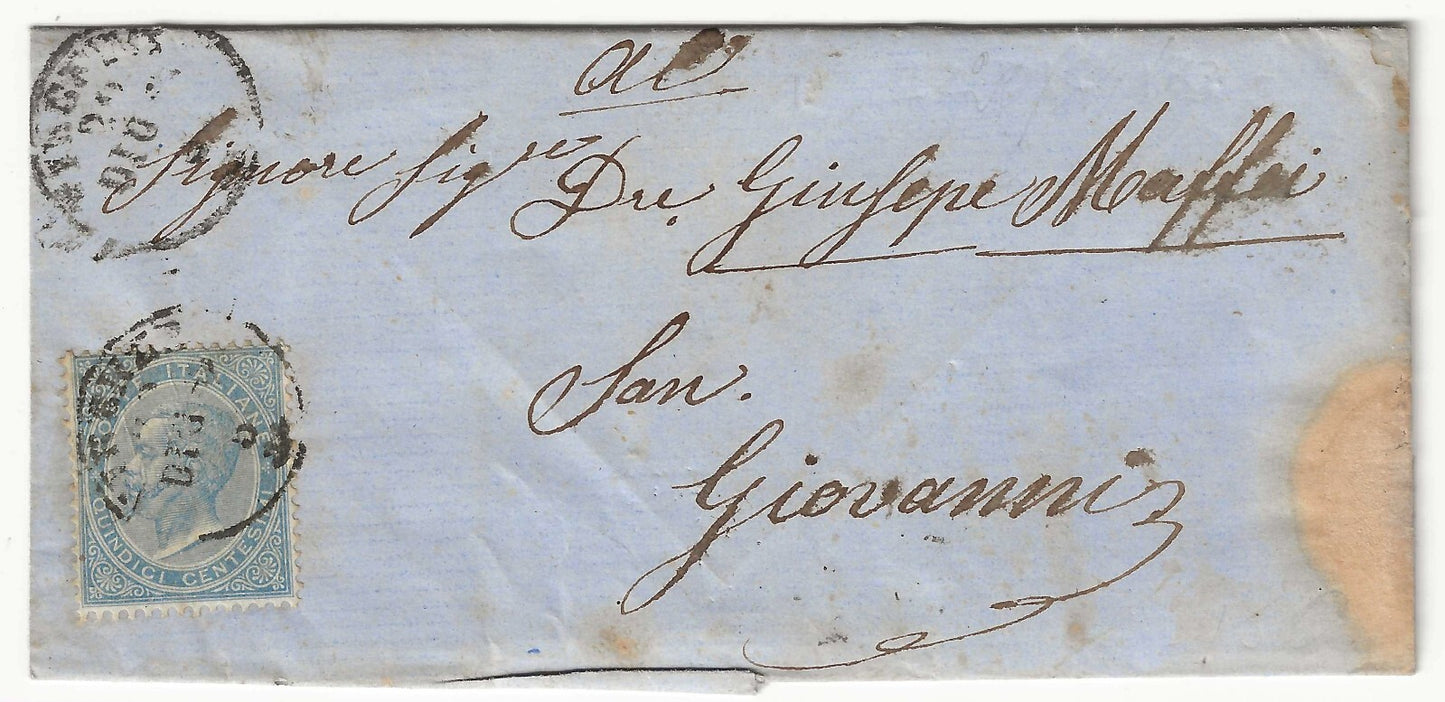 al
Signore Sig.re Dre. Giusepe Maffei
San.
Giovanni
DIC
POSTE ITALIANE
DIC
QUINDICI CENTESIMI